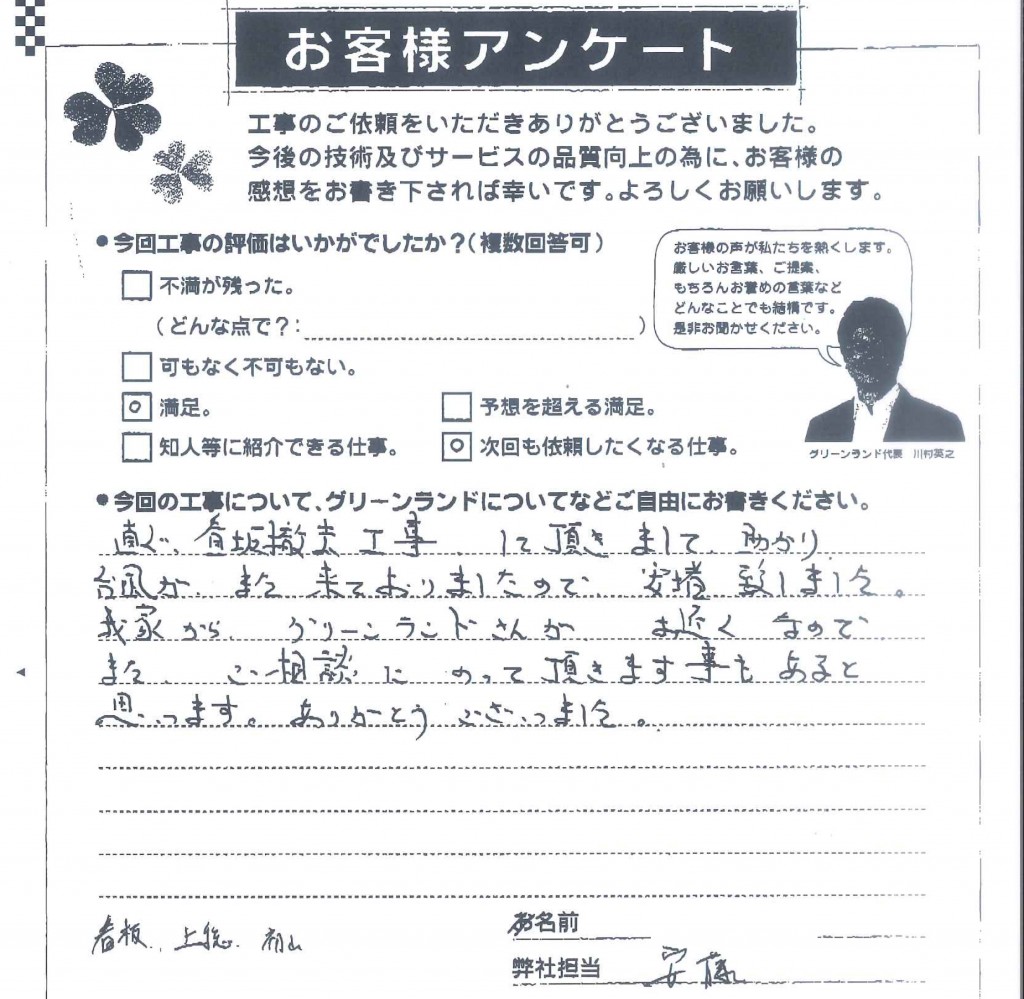 お客様アンケート
工事のご依頼をいただきありがとうございました。
今後の技術及びサービスの品質向上の為に、お客様の
感想をお書き下されば幸いです。よろしくお願いします。
●今回工事の評価はいかがでしたか？(複数回答可)
不満が残った。
(どんな点で？: )
可もなく不可もない。
満足。
予想を超える満足。
知人等に紹介できる仕事。
次回も依頼したくなる仕事。
お客様の声が私たちを熱くします。
厳しいお言葉、ご提案、
もちろんお誉めの言葉など
どんなことでも結構です。
是非お聞かせください。
グリーンランド代表 川村英之
●今回の工事について、グリーンランドについてなどご自由にお書きください。
直ぐ、看板撤去工事、して頂きまして、助かり
台風が、また 来ておりましたので、安堵 致しました。
我家から、グリーンランドさんが、お近く なので
また、ご相談に のって頂きます事も あると
思います。ありがとう ございました。
看板、上総、
お名前
弊社担当 安藤